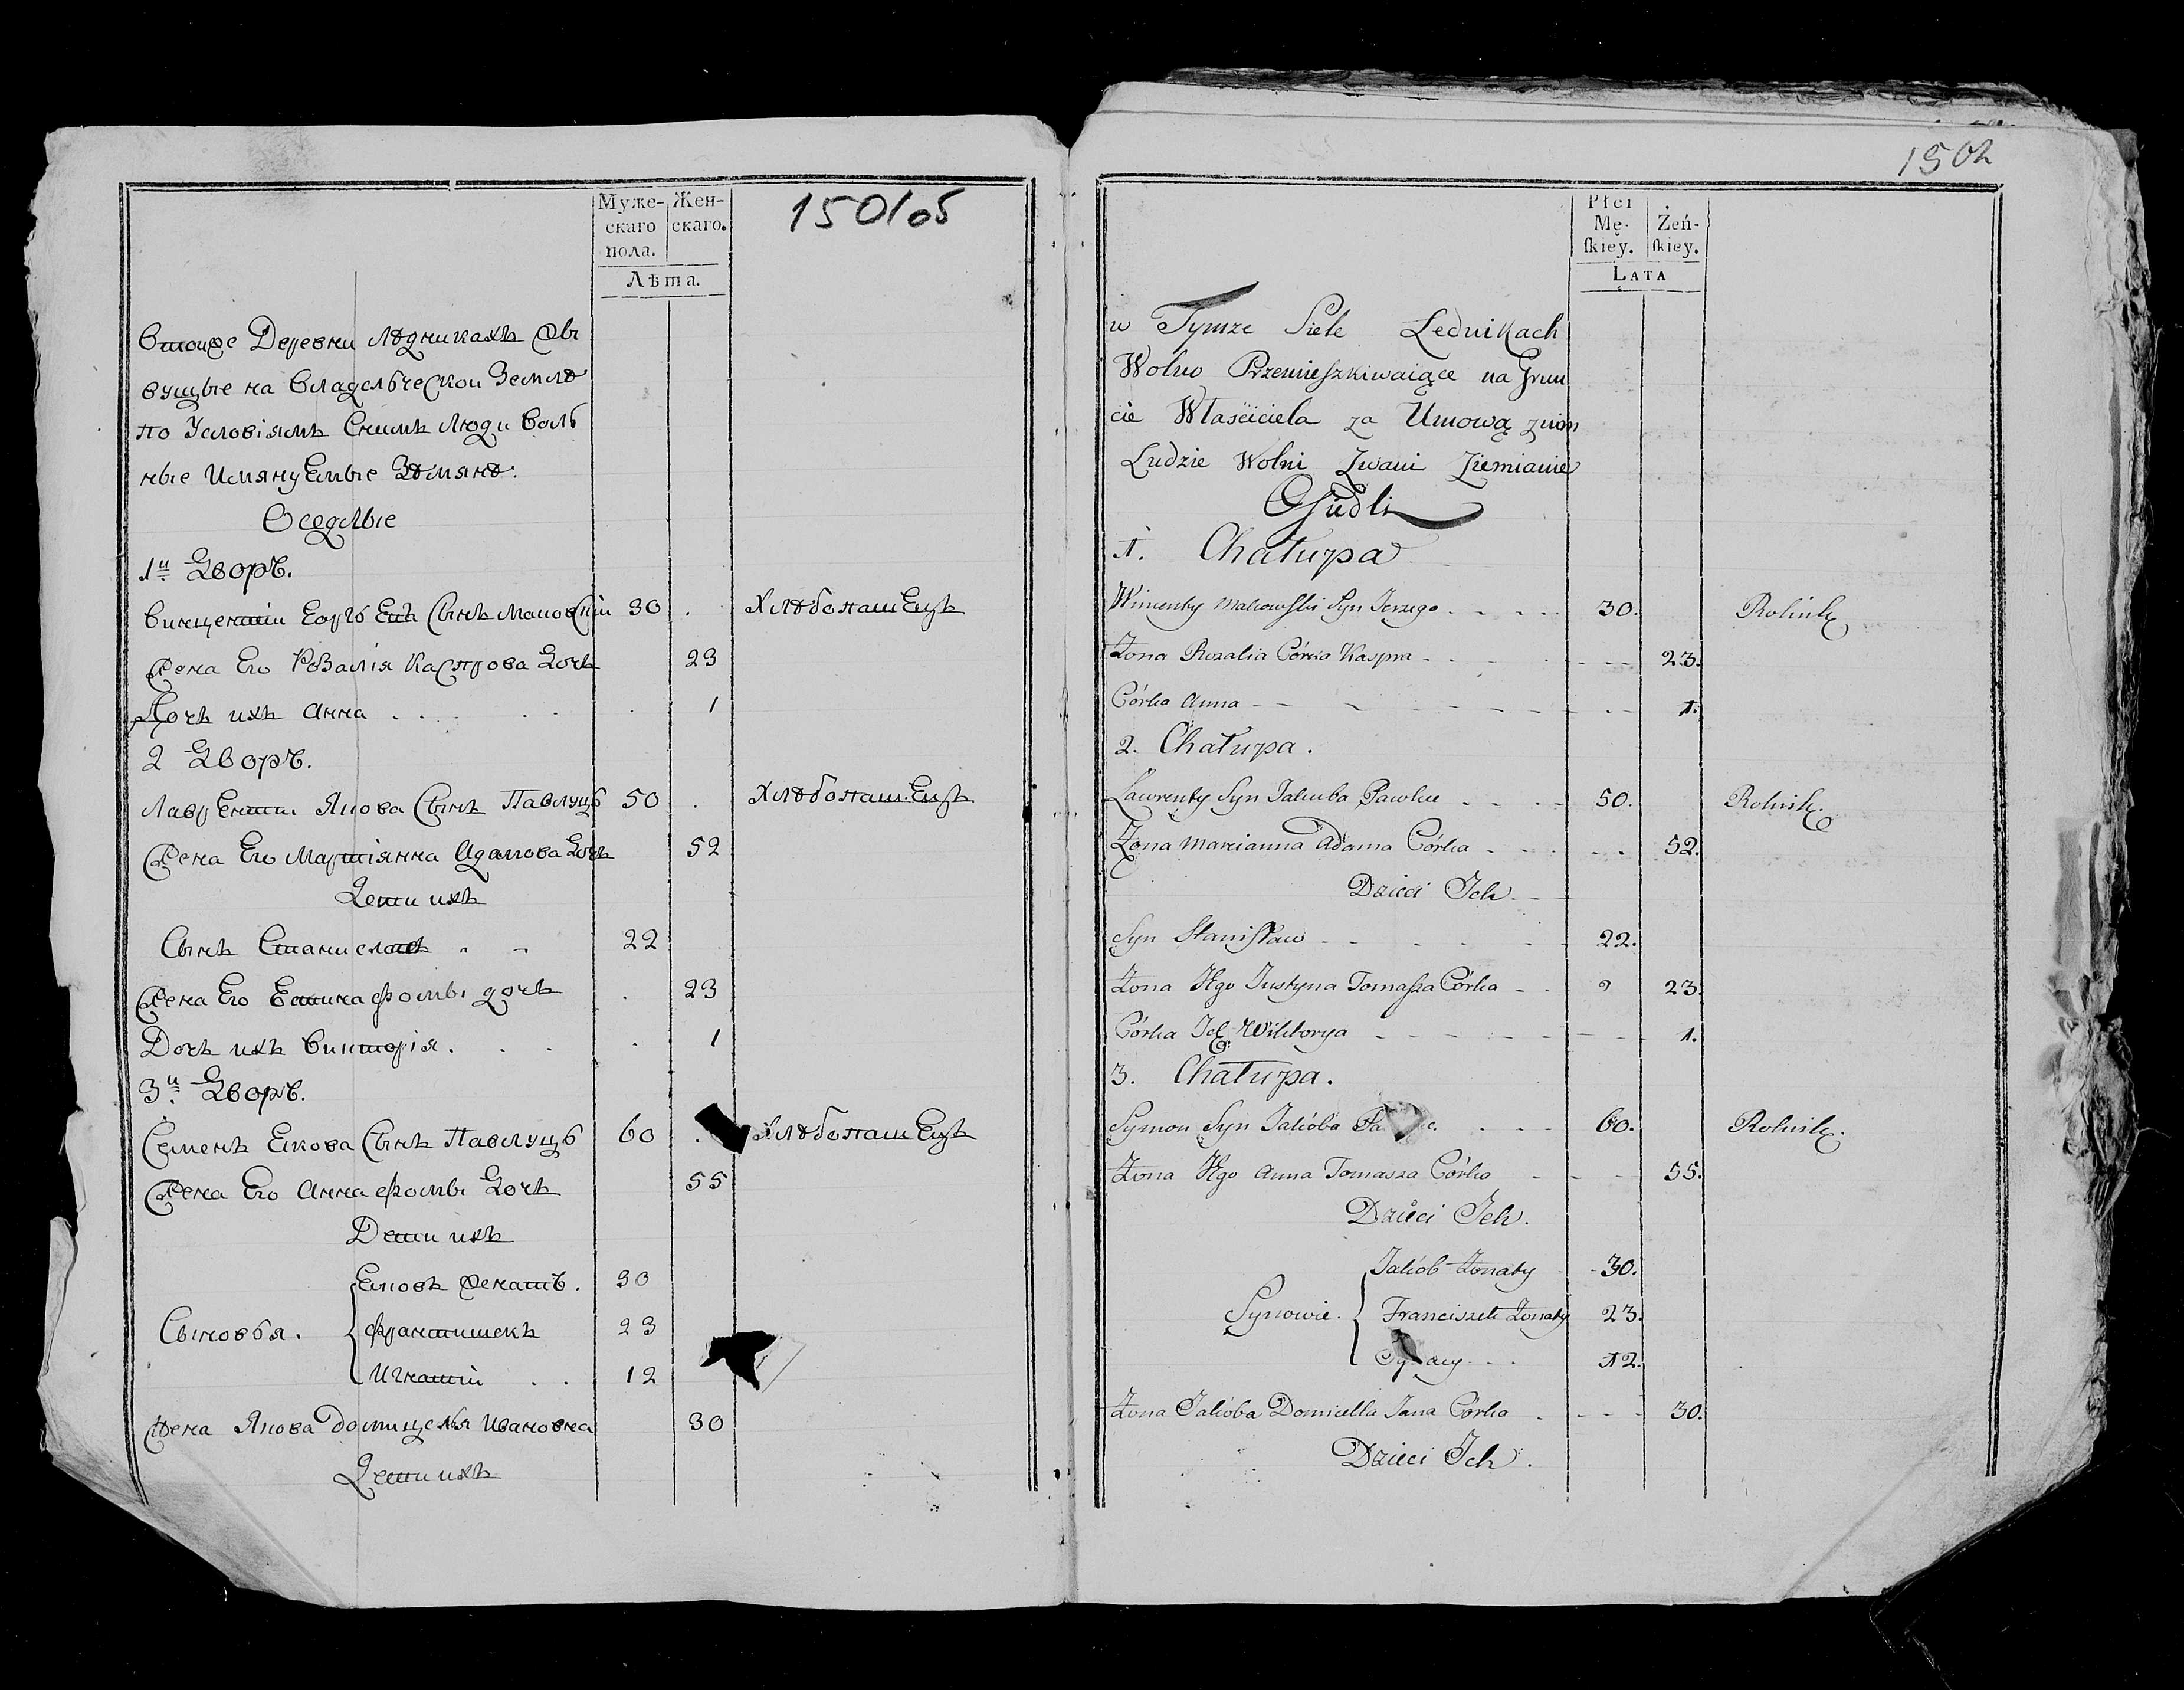 Муже-
скаго
пола.
Жен-
скаго.
Лѣта.
150/об
втойже Деревни Лѣдникахъ жи
вущые на владелческои Землѣ
по Условіямъ Снимъ Люди воль
ные Имянуемые Зѣмянѣ:
Оседлые
1й Дворъ.
Винцентіи Сынъ 30 Хлѣбопашецъ
Жена Его Розалія Каспрова Дочь 23
Дочь ихъ Анна . . . . . 1
2 Дворъ.
Лаврентии Якова Сынъ Павлуць 50 Хлѣбопашецъ
Жена Его Марціянна Адамова Дочь 52
Дети ихъ
Сынъ Станиславъ 22
Жена Его Юстина Фомы дочь 23
Дочь ихъ Викторія . . . . 1
3й Дворъ.
Семенъ Якова Сынъ Павлуць 60 Хлѣбопашецъ
Жена Его Анна Фомы Дочь 55
Дети ихъ
Сыновья.
женатъ. 30
Францишекъ 23
Игнатіи . . 12
Жена Якова Домицеля Ивановна 30
Дети ихъ
150л
Płci
Mę-
skiey.
Żeń-
skiey.
Lata
w Tymze Siele Lednikach
Wolno Przemieszkiwaiące na Grun
cie Właściciela za Umową z nim
Ludzie Wolni Zwani Ziemianie
Osiedli
1. Chałupa
Wincenty Makowski Syn Jerzego . . . . 30. Rolnik
Żona Rozalia Córka Kaspra - - - 23.
Córka Anna - - - - - 1.
2. Chałupa.
Lawrenty Syn Jakuba Pawluc . . . - 50. Rolnik.
Żona Marcianna Adama Córka - - - 52.
Dzieci Ich - -
Syn Stanisław - - - - 22.
Żona Jego Justyna Tomasza Córka - - 23.
Córka Ich Wiktorya - - - - - 1.
3. Chałupa.
Symon Syn Jakóba . . . - 60. Rolnik.
Żona Jego Anna Tomasza Córka - - - 55.
Dzieci Ich.
Jakób Żonaty - 30.
Synowie. Franciszek Żonaty 23.
12.
Żona Jakóba Domicella Jana Córka - - - 30.
Dzieci Ich.